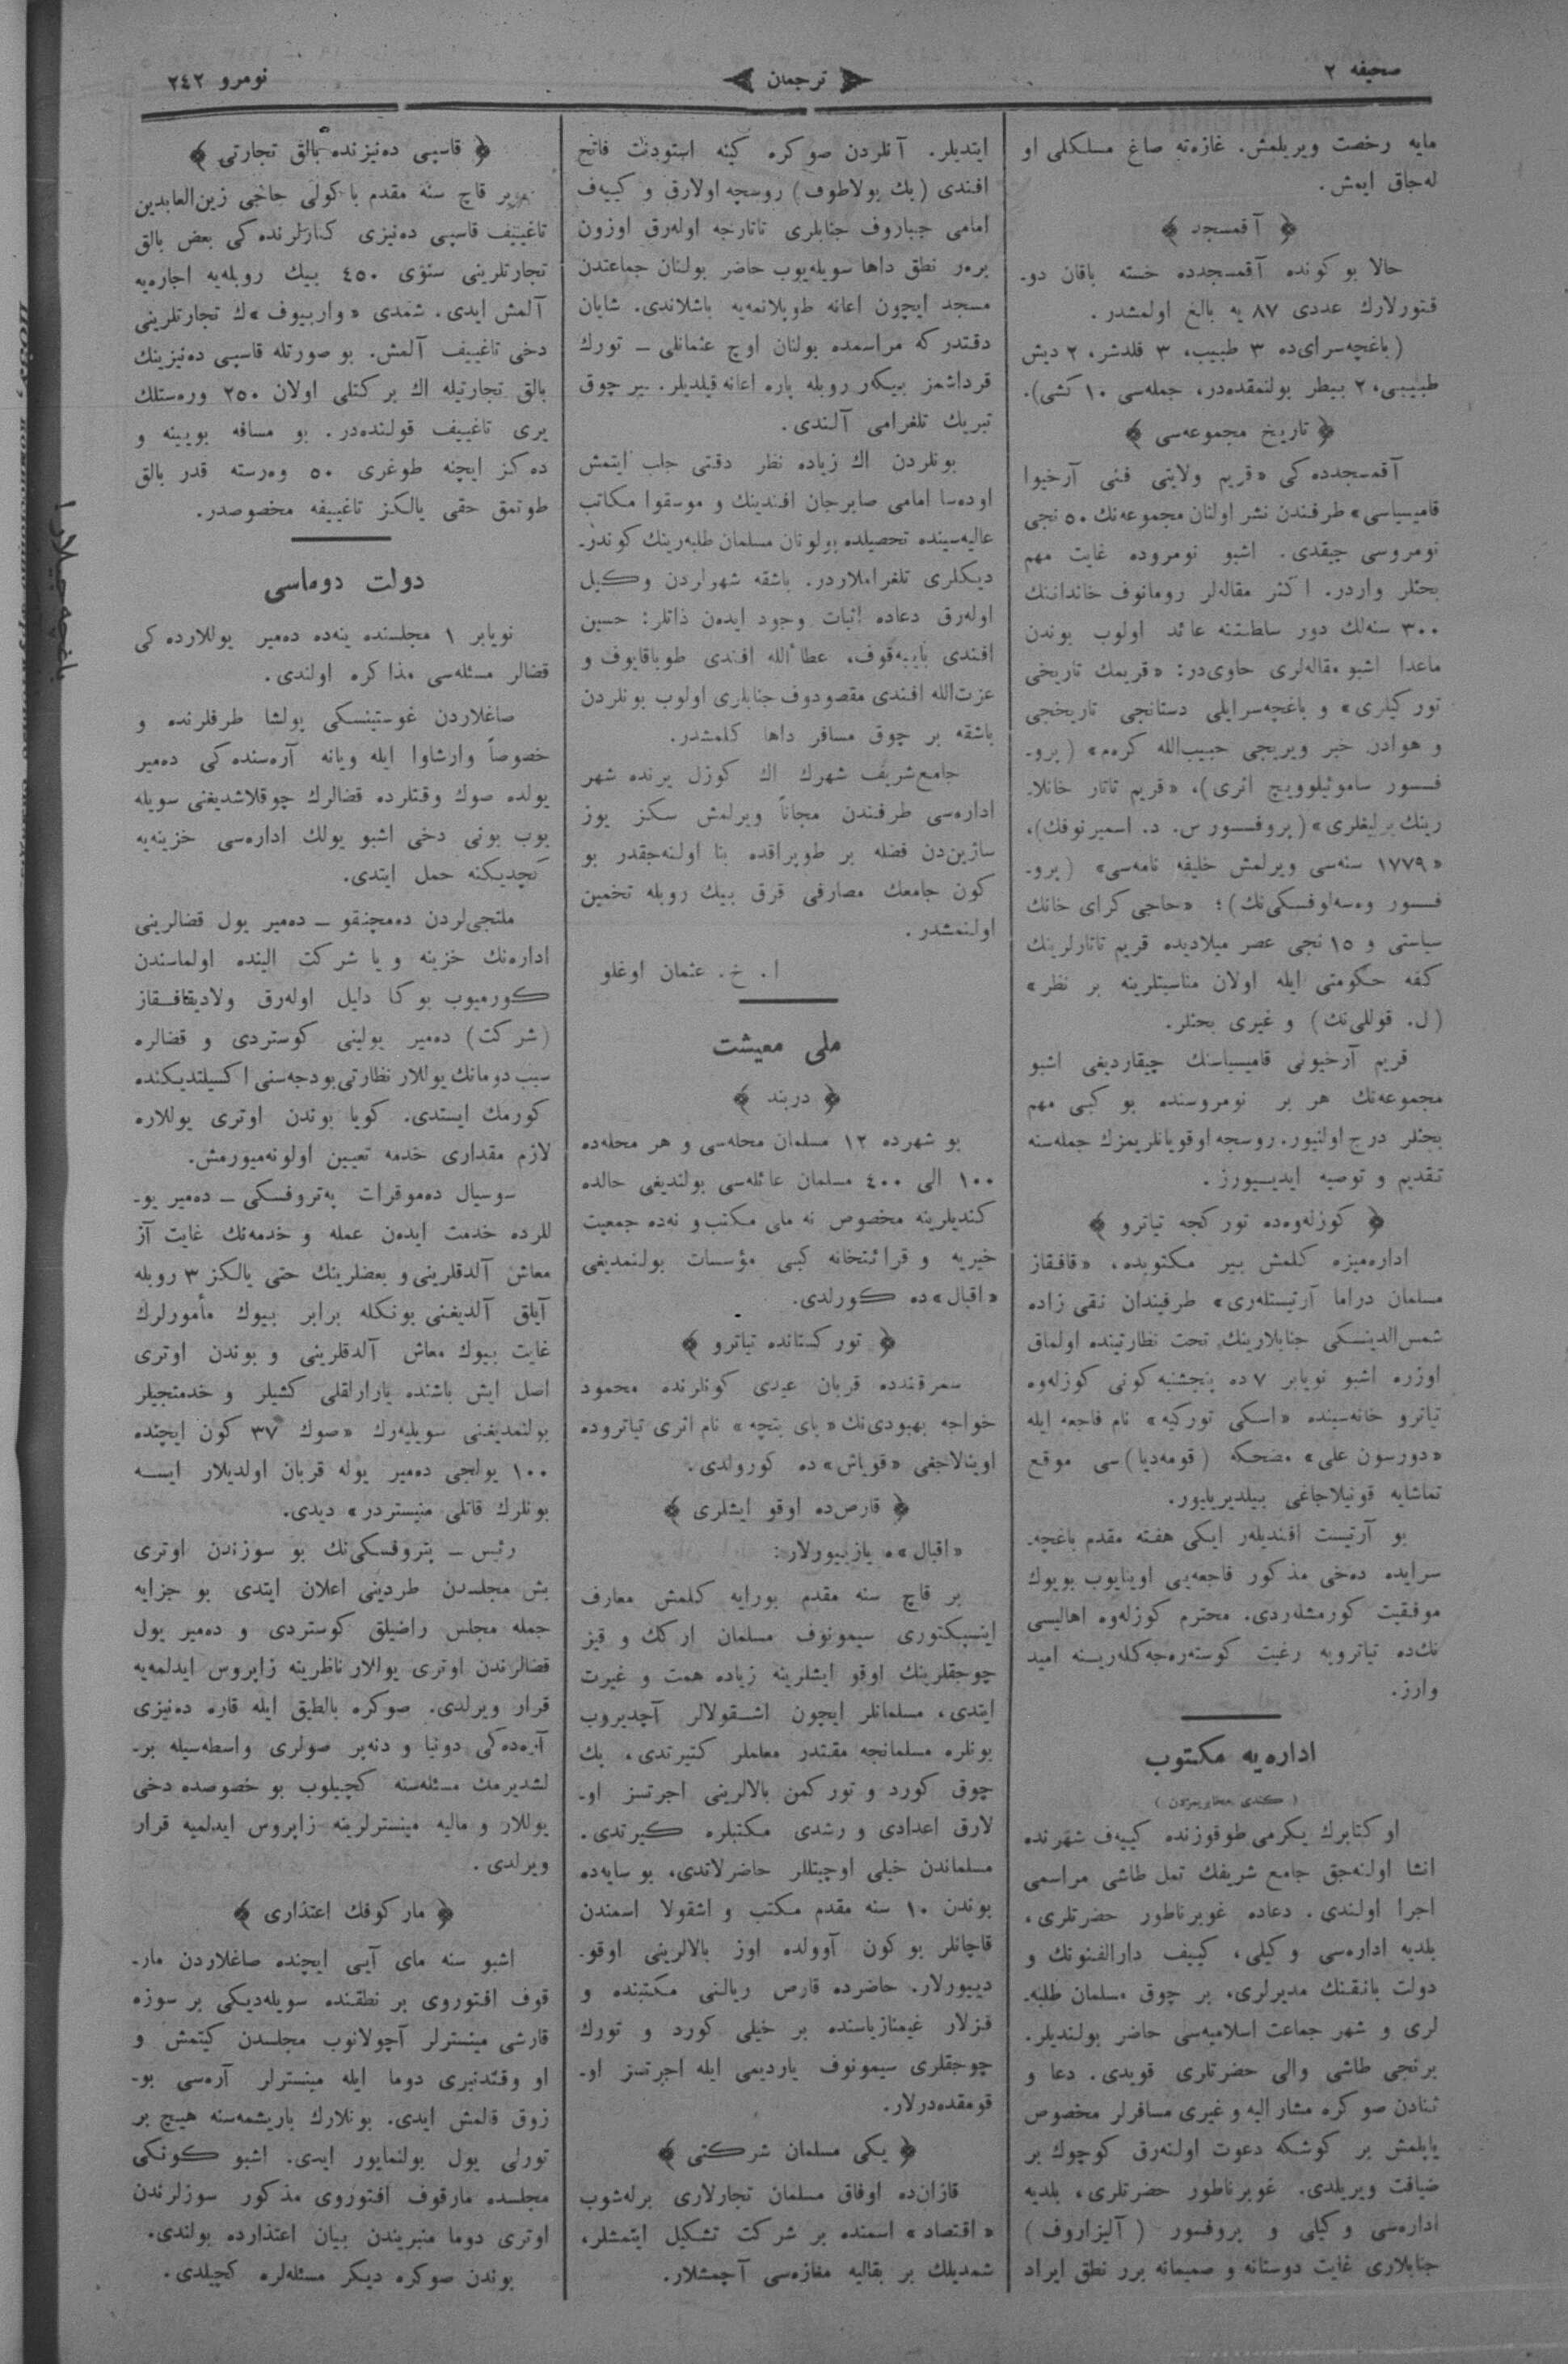 صحیفه ٢
ترجمان
نومرو ٢٤٢
مایه رخصت ویریلمش. غازەته صاغ مسلكلی او
لەجاق ایمش.
﴿ آقمسجد ﴾
حالا بو كونده آقمسجدده خسته باقان دو-
قتورلارك عددی ٨٧ یه بالغ اولمشدر.
(باغچەسرای‌ده ٣ طبیب، ٣ فلدشر، ٢ دیش
طبیبی، ٢ بیطر بولنمقدەدر، جملەسی ١٠ كشی).
﴿ تاریخ مجموعەسی ﴾
آقمسجددە كی «قریم ولایتی فنی آرخیوا
قامیسیاسی» طرفندن نشر اولنان مجموعەنك ٥٠ نجی
نومروسی چیقدی. اشبو نومروده غایت مهم
بحثلر واردر. اكثر مقالەلر رومانوف خانداننك
٣٠٠ سنەلك دور سلطنتنه عائد اولوب بوندن
ماعدا اشبو مقالەلری حاوی‌در: «قریمك تاریخی
توركیلری» و باغچەسرایلی دستانجی تاریخجی
و هوادن خبر ویریجی حبیب‌الله كرەم» (پرو-
فسسور ساموئیلوویچ اثری)، «قریم تاتار خانلا-
رینك یرلیغلری» (پروفسسور س. د. اسمیرنوفك)،
«١٧٧٩ سنەسی ویرلمش خلیفه نامەسی» (پرو-
فسسور وەسەلوفسكی‌نك)؛ «حاجی كرای خانك
سیاستی و ١٥ نجی عصر میلادیده قریم تاتارلرینك
كفه حكومتی ایله اولان مناسبتلرینه بر نظر»
(ل. قوللی‌نك) و غیری بحثلر.
قریم آرخیونی قامیسیاسنك چیقاردیغی اشبو
مجموعەنك هر بر نومروسنده بو كبی مهم
بحثلر درج اولنیور. روسجه اوقویانلریمزك جملەسنه
تقدیم و توصیه ایدیییورز.
﴿ كوزلەوەده توركجه تیاترو ﴾
ادارەمیزه كلمش بیر مكتوبده، «قافقاز
مسلمان دراما آرتیستلەری» طرفیندان نقی زاده
شمس‌الدینسكی جنابلارینك تحت نظارتینده اولماق
اوزره اشبو نویابر ٧ ده پنجشنبه كونی كوزلەوه
تیاترو خانەسینده «اسكی توركیه» نام فاجعه ایله
«دورسون علی» مضحكه (قومەدیا) سی موقع
تماشایه قونیلاجاغی بیلدیریلیور.
بو آرتیست افندیلەر ایكی هفته مقدم باغچه-
سرایده دەخی مذكور فاجعەیی اوینایوب بویوك
موفقیت كورمشلەردی. محترم كوزلەوه اهالیسی
نك‌ده تیاترویه رغبت كوستەرەجەكلەرینه امید
وارز.
ادارەیه مكتوب
(كندی مخابریمزدن)
اوكتابرك یكرمی طوقوزنده كییەف شهرنده
انشا اولنەجق جامع شریفك تمل طاشی مراسمی
اجرا اولندی. دعاده غوبرناطور حضرتلری،
بلدیه ادارەسی وكیلی، كییف دارالفنونك و
دولت بانقنك مدیرلری، بر چوق مسلمان طلبه-
لری و شهر جماعت اسلامیەسی حاضر بولندیلر.
برنجی طاشی والی حضرتلری قویدی. دعا و
ثنادن صوكره مشار الیه و غیری مسافرلر مخصوص
یاپلمش بر كوشكه دعوت اولنەرق كوچوك بر
ضیافت ویریلدی. غوبرناطور حضرتلری، بلدیه
ادارەسی وكیلی و پروفسور (آلیزاروف)
جنابلاری غایت دوستانه و صمیمانه برر نطق ایراد
ایتدیلر. آنلردن صوكره كینه استودنت فاتح
افندی (بك بولاطوف) روسچه اولارق و كییەف
امامی جباروف جنابلری تاتارجه اولەرق اوزون
برەر نطق داها سویلەیوب حاضر بولنان جماعتدن
مسجد ایچون اعانه طوپلانمەیه باشلاندی. شایان
دقتدركه مراسمده بولنان اوچ عثمانلی ـ تورك
قرداشمز بیكەر روبله پاره اعانه قیلدیلر. بیر چوق
تبریك تلغرامی آلندی.
بونلردن اك زیاده نظر دقتی جلب ایتمش
اودەسا امامی صابرجان افندینك و موسقوا مكاتب
عالیەسینده تحصیلده بولونان مسلمان طلبەرینك كوندر-
دیكلری تلغراملاردر. باشقه شهرلردن وكیل
اولەرق دعاده اثبات وجود ایدەن ذاتلر: حسین
افندی بایبەقوف، عطاءالله افندی طوباقایوف و
عزت‌الله افندی مقصودوف جنابلری اولوب بونلردن
باشقه بر چوق مسافر داها كلمشدر.
جامع‌شریف شهرك اك كوزل یرنده شهر
ادارەسی طرفندن مجاناً ویرلمش سكز یوز
ساژین‌دن فضله بر طوپراقده بنا اولنەجقدر بو
كون جامعك مصارفی قرق بیك روبله تخمین
اولنمشدر.
ا. خ. عثمان اوغلو
ملی معیشت
﴿ دربند ﴾
بو شهرده ١٢ مسلمان محلەسی و هر محلەده
١٠٠ الی ٤٠٠ مسلمان عائلەسی بولندیغی حالده
كندیلرینه مخصوص نه ملی مكتب و نەده جمعیت
خیریه و قرائتخانه كبی مؤسسات بولنمدیغی
«اقبال» ده كورلدی.
﴿ توركستانده تیاترو ﴾
سمرقندده قربان عیدی كونلرنده محمود
خواجه بهبودی‌نك «بای بتچه» نام اثری تیاتروده
اوینالاجغی «قویاش» ده كورولدی.
﴿ قارص‌ده اوقو ایشلری ﴾
«اقبال»ه یازییورلار:
بر قاچ سنه مقدم بورایه كلمش معارف
اینسپكتوری سیمونوف مسلمان اركك و قیز
چوجقلرینك اوقو ایشلرینه زیاده همت و غیرت
ایتدی، مسلمانلر ایچون اشقولالر آچدیروب
بونلره مسلمانجه مقتدر معلملر كتیرتدی، پك
چوق كورد و توركمن بالالرینی اجرتسز او-
لارق اعدادی و رشدی مكتبلره كیرتدی.
مسلماندن خیلی اوچیتللر حاضرلاتدی، بو سایەده
بوندن ١٠ سنه مقدم مكتب و اشقولا اسمندن
قاچانلر بو كون آوولده اوز بالالرینی اوقو-
دییورلار. حاضرده قارص ریالنی مكتبنده و
قزلار غیمنازیاسنده بر خیلی كورد و تورك
چوجقلری سیمونوف یاردیمی ایله اجرتسز او-
قومقدەدرلار.
﴿ یكی مسلمان شركتی ﴾
قازان‌ده اوفاق مسلمان تجارلاری برلەشوب
«اقتصاد» اسمنده بر شركت تشكیل ایتمشلر،
شمدیلك بر بقالیه مغازەسی آچمشلار.
﴿ قاسپی دەنیزنده بالق تجارتی ﴾
بر قاچ سنه مقدم باكولی حاجی زین‌العابدین
تاغییف قاسپی دەنیزی كنارلرنده كی بعض بالق
تجارتلرینی سنوی ٤٥٠ بیك روبلەیه اجارەیه
آلمش ایدی. شمدی «واربیوف»ك تجارتلرینی
دخی تاغییف آلمش. بو صورتله قاسپی دەنیزینك
بالق تجارتیله اك بركتلی اولان ٢٥٠ ورەستلك
یری تاغییف قولندەدر. بو مسافه بویینه و
دەكز ایچنه طوغری ٥٠ وەرسته قدر بالق
طوتمق حقی یالكز تاغییفه مخصوصدر.
دولت دوماسی
نویابر ١ مجلسنده ینەده دەمیر یوللارده كی
قضالر مسئلەسی مذاكره اولندی.
صاغلاردن غوستینسكی پولشا طرفلرنده و
خصوصاً وارشاوا ایله ویانه آرەسنده كی دەمیر
یولده صوك وقتلرده قضالرك چوقلاشدیغنی سویله
یوب بونی دخی اشبو یولك ادارەسی خزینەیه
كچدیكنه حمل ایتدی.
ملتجی‌لردن دەمچنقو ـ دەمیر یول قضالرینی
ادارەنك خزینه و یا شركت الینده اولماسندن
كورمیوب بوكا دلیل اولەرق ولادیقافقاز
(شركت) دەمیر یولینی كوستردی و قضالره
سبب دومانك یوللار نظارتی بودجەسنی اكسیلتدیكنده
كورمك ایستدی. كویا بوندن اوتری یوللاره
لازم مقداری خدمه تعیین اولونەمیورمش.
سوسیال دەموقرات پەتروفسكی ـ دەمیر یو-
للرده خدمت ایدەن عمله و خدمەنك غایت آز
معاش آلدقلرینی و بعضلرینك حتی یالكز ٣ روبله
آیلق آلدیغنی بونكله برابر بیوك مأمورلرك
غایت بیوك معاش آلدقلرینی و بوندن اوتری
اصل ایش باشنده یارارلقلی كشیلر و خدمتجیلر
بولنمدیغنی سویلیەرك «صوك ٣٧ كون ایچنده
١٠٠ یولجی دەمیر یوله قربان اولدیلار ایسه
بونلرك قاتلی منیستردر» دیدی.
رئیس ـ پتروفسكی‌نك بو سوزندن اوتری
بش مجلسدن طردینی اعلان ایتدی بو جزایه
جمله مجلس راضیلق كوستردی و دەمیر یول
قضالرندن اوتری یوللار ناظرینه زاپروس ایدلمەیه
قرار ویرلدی. صوكره بالطیق ایله قاره دەنیزی
آرەدەكی دونیا و دنەپر صولری واسطەسیله بر-
لشدیرمك مسئلەسنه كچیلوب بو خصوصده دخی
یوللار و مالیه مینسترلرینه زاپروس ایدلمیه قرار
ویرلدی.
﴿ ماركوفك اعتذاری ﴾
اشبو سنه مای آیی ایچنده صاغلاردن مار-
قوف افتوروی بر نطقنده سویلەدیكی بر سوزه
قارشی مینسترلر آچولانوب مجلسدن كیتمش و
او وقتدنبری دوما ایله مینسترلر آرەسی بو-
زوق قالمش ایدی. بونلارك باریشمەسنه هیچ بر
تورلی یول بولنمایور ایدی. اشبو كونكی
مجلسده مارقوف افتوروی مذكور سوزلرندن
اوتری دوما منبریندن بیان اعتذارده بولندی.
بوندن صوكره دیكر مسئلەلره كچیلدی.